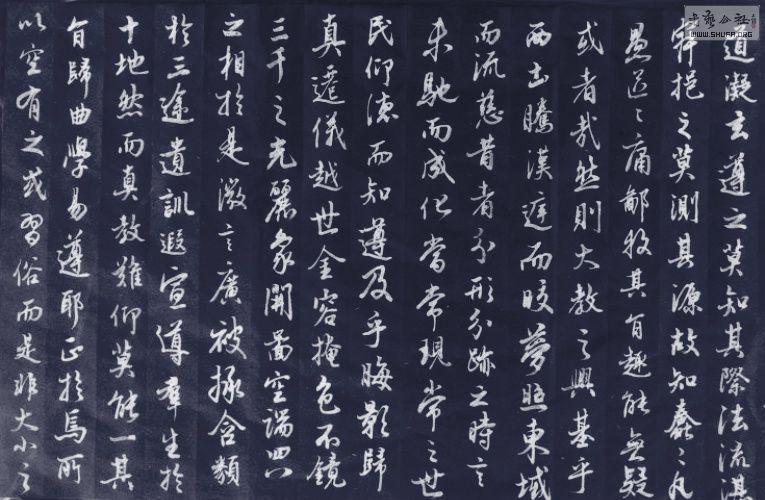 道凝玄遵之莫知其際法流湛
寂挹之莫測其源故知蠢々凡
愚區々庸鄙投其旨趣能無疑
或者哉然則大教之興基乎
西土騰漢庭而皎夢照東域
而流慈昔者分形分跡之時言
未馳而成化當常現常之世
民仰德而知遵及乎晦影歸
真遷儀越世金容掩色不鏡
三千之光麗象開圖空端四八
之相於是微言廣被拯含類
於三途遺訓遐宣導群生於
十地然而真教難仰莫能一其
旨歸曲學易遵耶正於焉所
以空有之或習俗而是非大小之
书艺公社
WWW.SHUFA.ORG